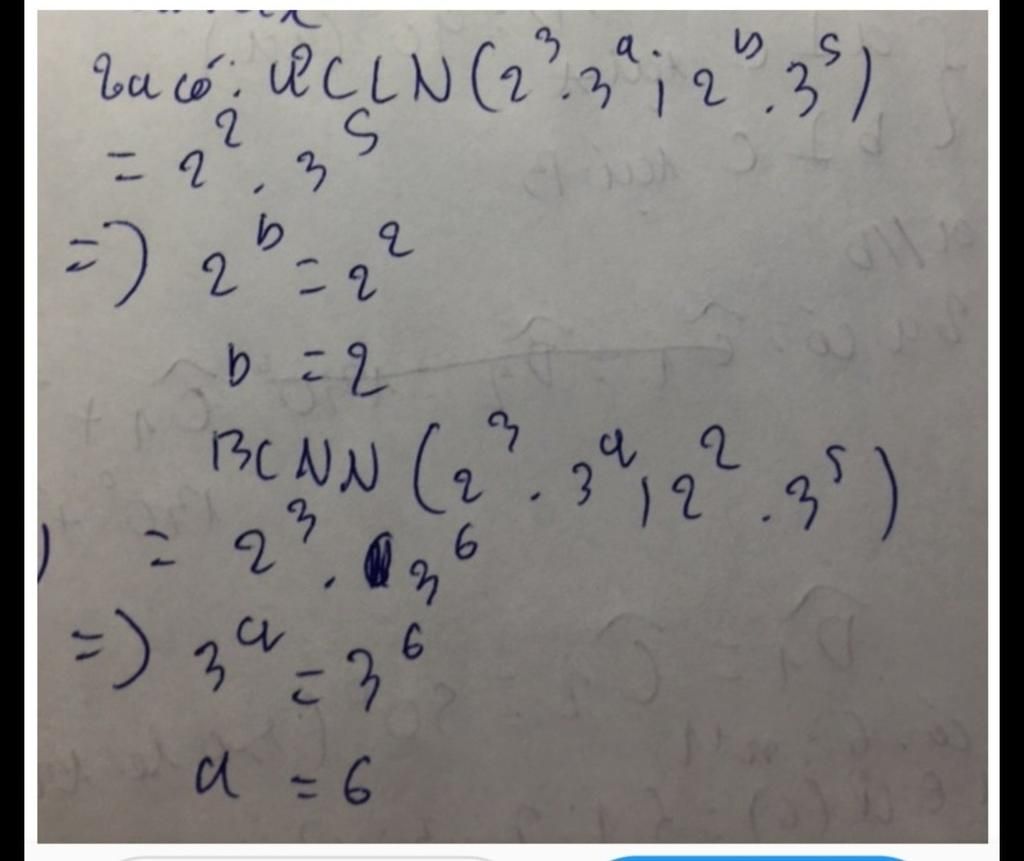 Ta có: ƯCLN(2³.3ᵃ; 2ᵇ.3⁵)
= 2².3⁵
=> 2ᵇ = 2²
b = 2
BCNN(2³.3ᵃ; 2².3⁵)
= 2³.3⁶
=> 3ᵃ = 3⁶
a = 6